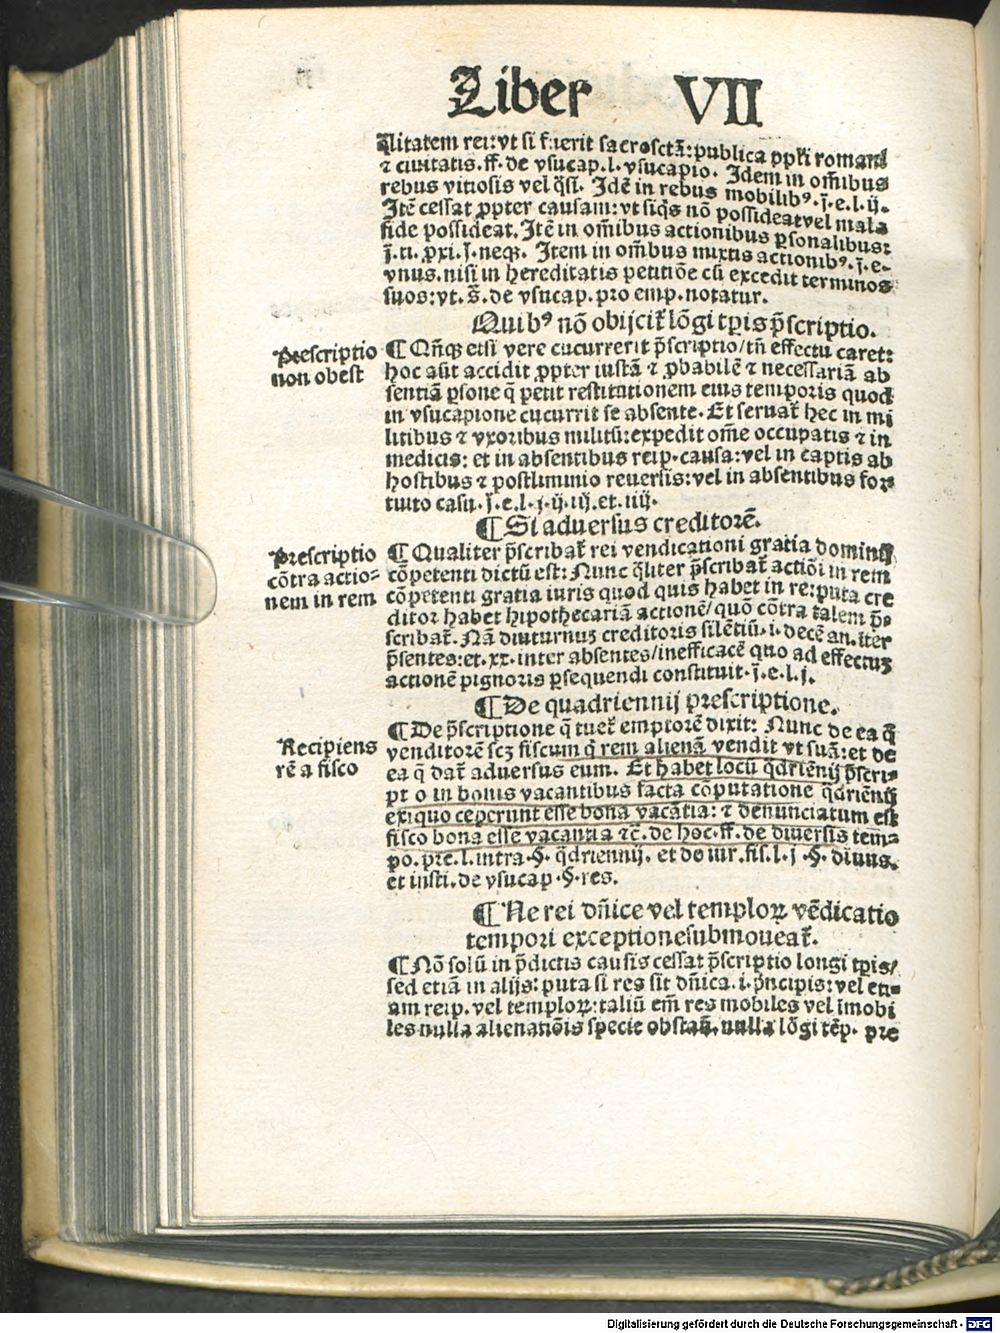 Liber VII
litatem rei: vt si fuerit sacrosctā: publica ppli romani
⁊ ciuitatis. ff. de vsucap. l. vsucapio. Idem in om̄ibus
rebus vitiosis vel q̄si. Idē in rebus mobilibꝰ. j̄. e. l. ij.
Itē cessat ꝓpter causam: vt siq̄s nō possideat vel mala
fide possideat. Itē in om̄ibus actionibus ꝑsonalibus:
j̄. ti. ꝓxi. l. neqꝫ. Item in om̄bus mixtis actionibꝰ. j̄. e.
vnus. nisi in hereditatis petitiōe cū excedit terminos
suos: vt. s̄. de vsucap. pro emp. notatur.
Quibꝰ nō obijcit̄ lōgi tꝑis p̄scriptio.
Prescriptio
non obest
¶ Qn̄qꝫ etsi vere cucurrerit p̄scriptio/ tn̄ effectu caret:
hoc aūt accidit ꝓpter iustā ⁊ ꝓbabilē ⁊ necessariā ab
sentiā ꝑsone q̄ petit restitutionem eius temporis quod
in vsucapione cucurrit se absente. Et seruat̄ hec in mi
litibus ⁊ vxoribus militū: expedit om̄e occupatis ⁊ in
medicis: et in absentibus reip. causa: vel in captis ab
hostibus ⁊ postliminio reuersis: vel in absentibus for
tuito casu. j̄. e. l. j. ij. iij. et. iiij.
¶ Si aduersus creditorē.
Prescriptio
cōtra actio⸗
nem in rem
¶ Qualiter p̄scribat̄ rei vendicationi gratia dominij
cōpetenti dictū est: Nunc q̄liter p̄scribat̄ actiōi in rem
cōpetenti gratia iuris quod quis habet in re: puta cre
ditor habet hipothecariā actionē/ quō cōtra talem p̄⸗
scribat̄. Nā diuturnuꝫ creditoris silētiū. i. decē an. iter
p̄sentes: et. xx. inter absentes/ inefficacē quo ad effectuꝫ
actionē pignoris ꝑsequendi constituit. j̄. e. l. j.
¶ De quadriennij prescriptione.
Recipiens
rē a fisco
¶ De p̄scriptione q̄ tuet̄ emptorē dixit: Nunc de ea q̄
venditorē scꝫ fiscum q̄ rem alienā vendit vt suā: et de
ea q̄ dat̄ aduersus eum. Et habet locū q̄driēnij p̄scri⸗
pt o in bonis vacantibus facta cōputatione q̄driēnij
ex quo ceperunt esse bona vacātia: ⁊ denunciatum est
fisco bona esse vacantia ⁊c̄. de hoc. ff. de diuersis tem̄⸗
po. pre. l. intra. §. q̄driennij. et de iur. fis. l. j. §. diuus.
et insti. de vsucap. §. res.
¶ Ne rei dn̄ice vel temploꝝ vēdicatio
tempori exceptione submoueat̄.
¶ Nō solū in p̄dictis causis cessat p̄scriptio longi tꝑis/
sed etiā in alijs: puta si res sit dn̄ica. i. p̄ncipis: vel eti⸗
am reip. vel temploꝝ: taliū em̄ res mobiles vel imobi
les nulla alienatiōis specie obstaūt. nulla lōgi tēp. pre
Digitalisierung gefördert durch die Deutsche Forschungsgemeinschaft - DFG